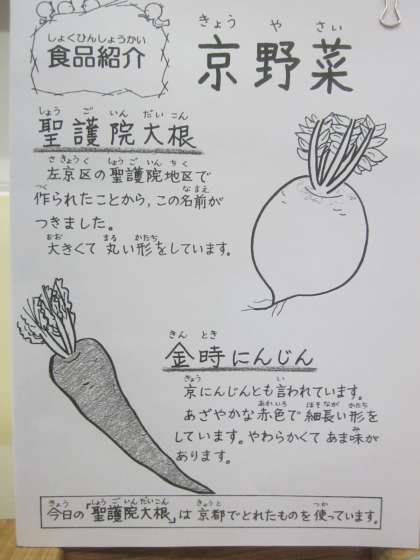 しょくひんしょうかい
食品紹介
きょう や さい
京野菜
しょう ご いん だい こん
聖護院大根
さきょうく しょうごいんちく
左京区の聖護院地区で
つく なまえ
作られたことから、この名前が
つきました。
おお まる かたち
大きくて丸い形をしています。
きん とき
金時にんじん
きょう い
京にんじんとも言われています。
あかいろ ほそなが かたち
あざやかな赤色で細長い形を
しています。やわらかくてあま味が
み
あります。
きょう しょうごいんだいこん きょうと つか
今日の「聖護院大根」は京都でとれたものを使っています。